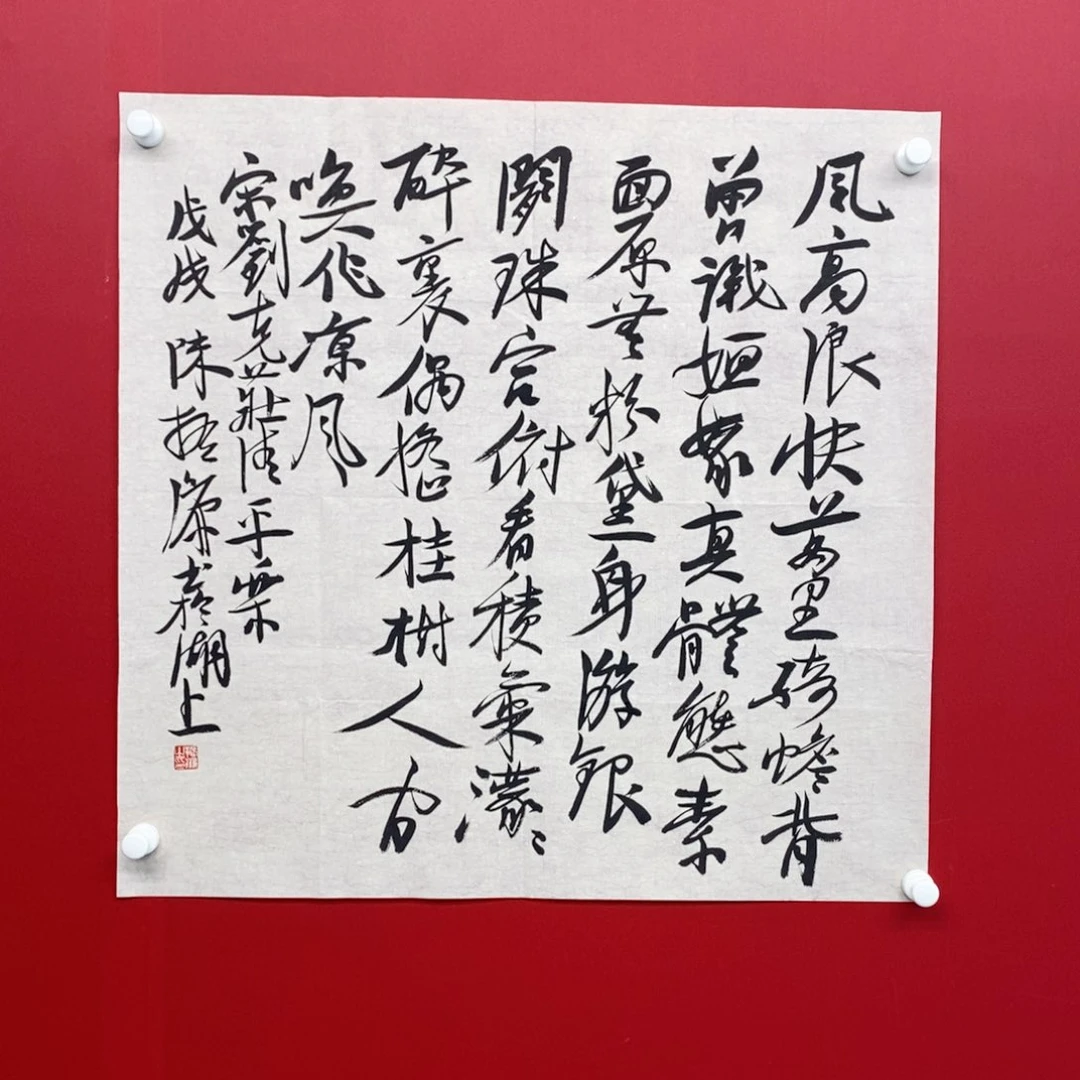 風高浪快萬里騎蟾背
曾識姮娥真體態素
面原無粉黛身游銀
闕珠宮俯看積氣濛〻
醉裏偶搖桂樹人間
喚作凉風
宋劉克莊清平樂
戊戌陳振濂書於湖上